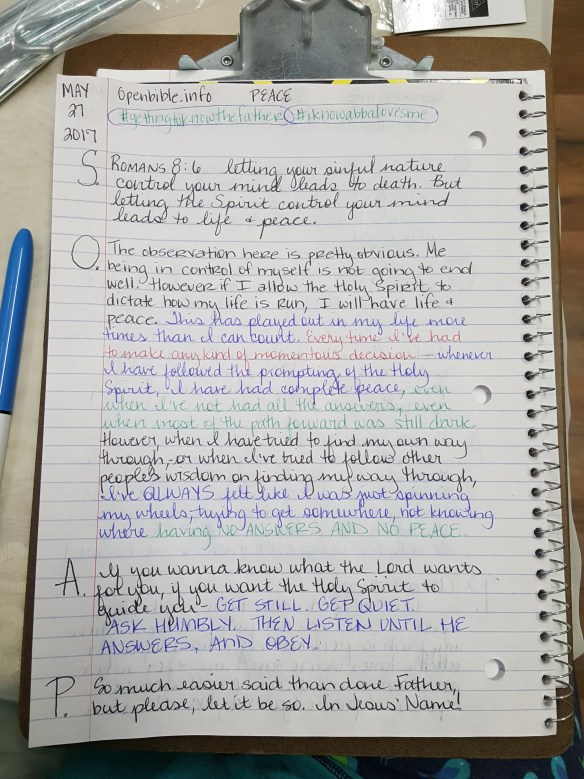 MAY
27
2017
Openbible.info PEACE
#gettingtoknowthefather #iknowabbalovesme
S. ROMANS 8:6 letting your sinful nature
control your mind leads to death. But
letting the Spirit control your mind
leads to life & peace.
O. The observation here is pretty obvious. Me
being in control of myself is not going to end
well. However if I allow the Holy Spirit to
dictate how my life is run, I will have life &
peace. This has played out in my life more
times than I can count. Every time I've had
to make any kind of momentous decision - whenever
I have followed the prompting of the Holy
Spirit, I have had complete peace, even
when I've not had all the answers, even
when most of the path forward was still dark.
However, when I have tried to find my own way
through, or when I've tried to follow other
people's wisdom on finding my way through,
I've ALWAYS felt like I was just spinning
my wheels, trying to get somewhere, not knowing
where having NO ANSWERS AND NO PEACE.
A. If you wanna know what the Lord wants
for you, if you want the Holy Spirit to
guide you - GET STILL. GET QUIET.
ASK HUMBLY. THEN LISTEN UNTIL HE
ANSWERS, AND OBEY.
P. So much easier said than done Father,
but please, let it be so. In Jesus' Name!